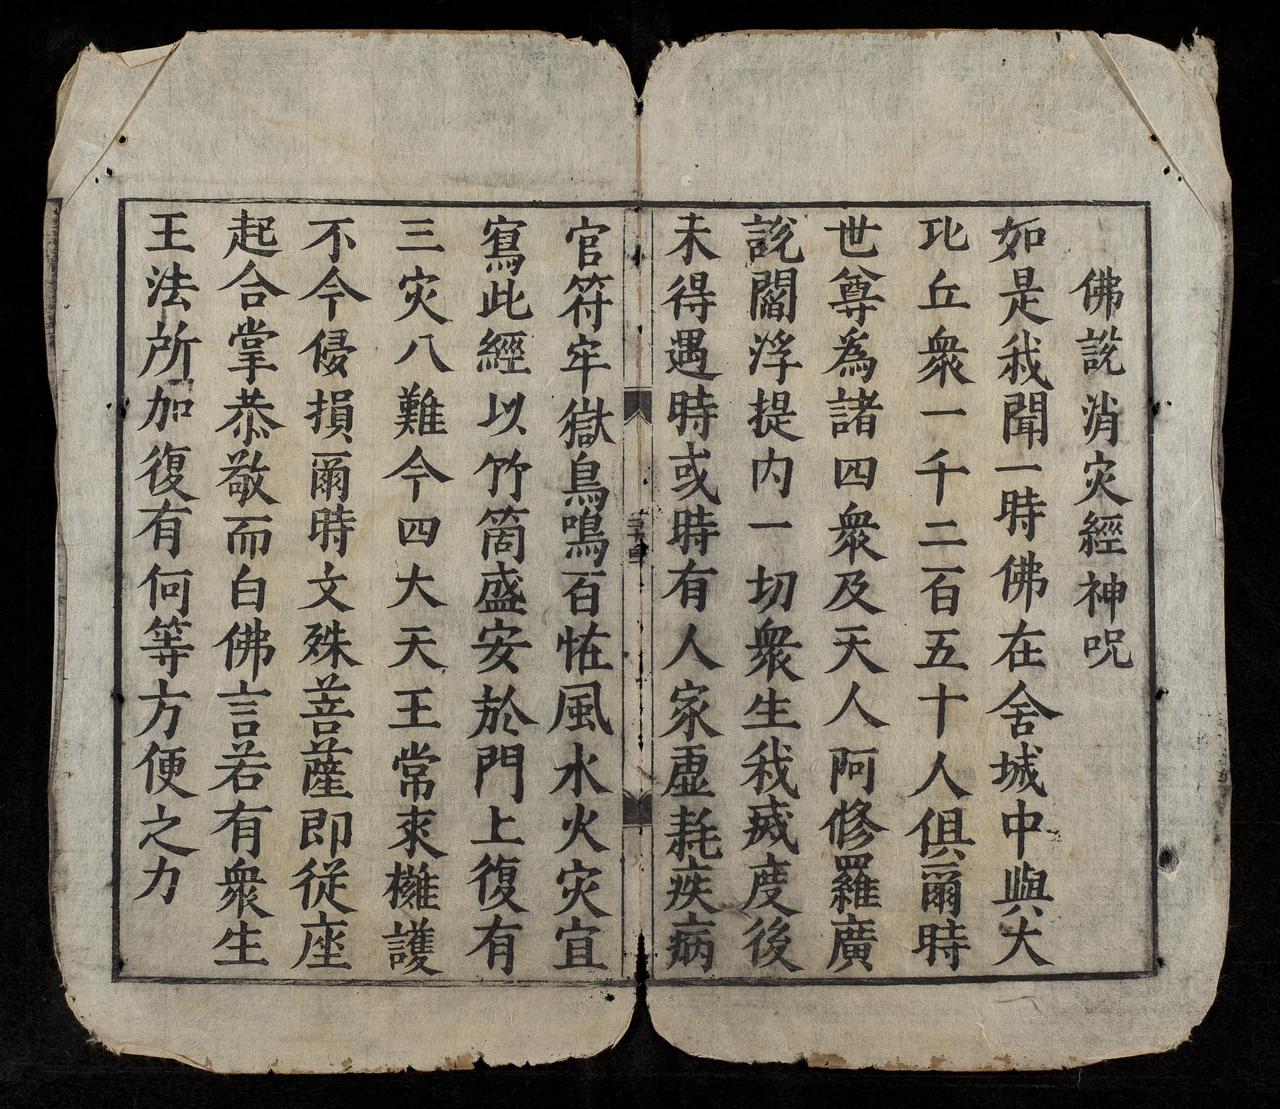 佛説消灾經神呪
如是我聞一時佛在舍城中與大
比丘衆一千二百五十人俱爾時
世尊為諸四衆及天人阿修羅廣
説閻浮提内一切衆生我滅度後
未得遇時或時有人家虚耗疾病
三十四
官符牢獄鳥鳴百恠風水火灾宜
寫此經以竹筒盛安於門上復有
三灾八難今四大天王常來擁護
不令侵損爾時文殊菩薩即從座
起合掌恭敬而白佛言若有衆生
王法所加復有何等方便之力